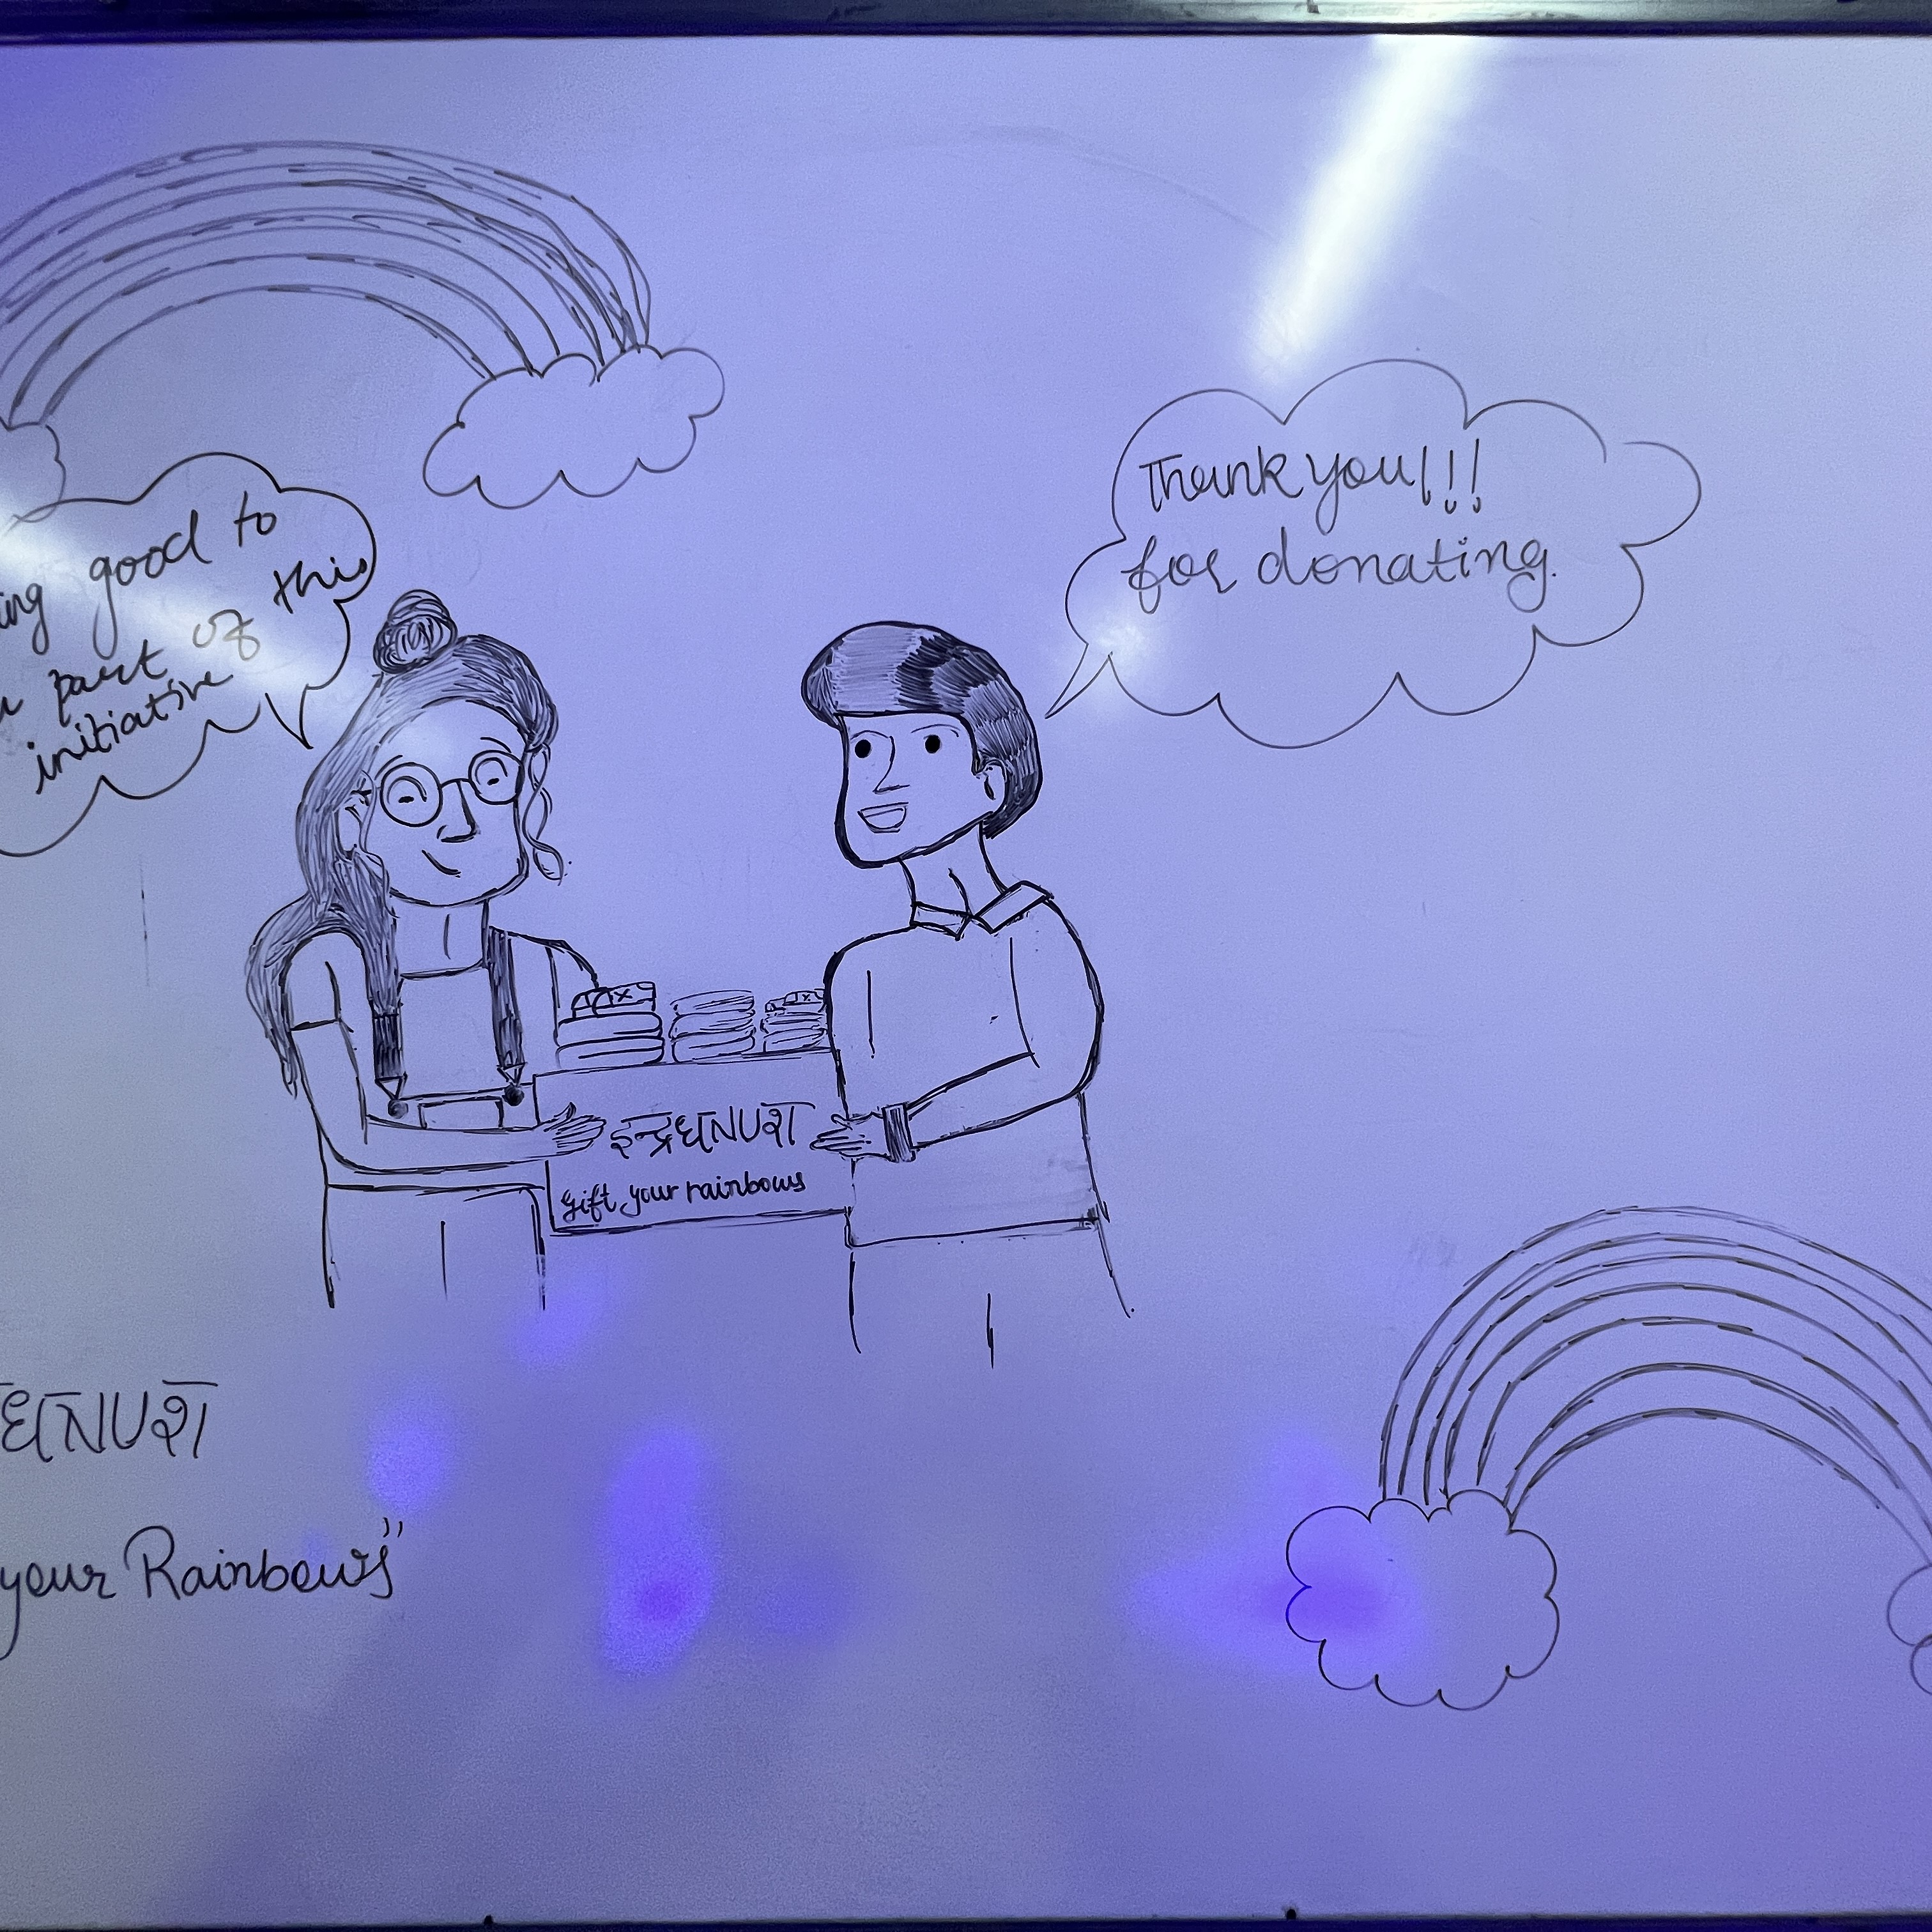 good to
part of this
initiative
Thank you!!!
for donating.
इन्द्रधNUश
Gift your rainbows
धNUश
your Rainbows"